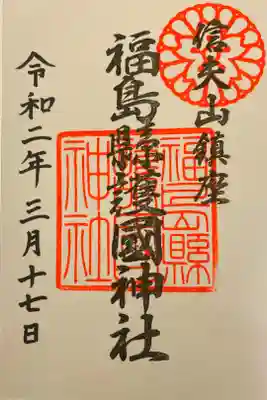 信夫山鎮座
福島縣護國神社
令和二年三月十七日
福島縣
護國
神社